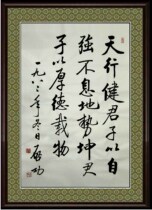 天行健君子以自
強不息地势坤君
子以厚德载物
一九八三年冬日 启功